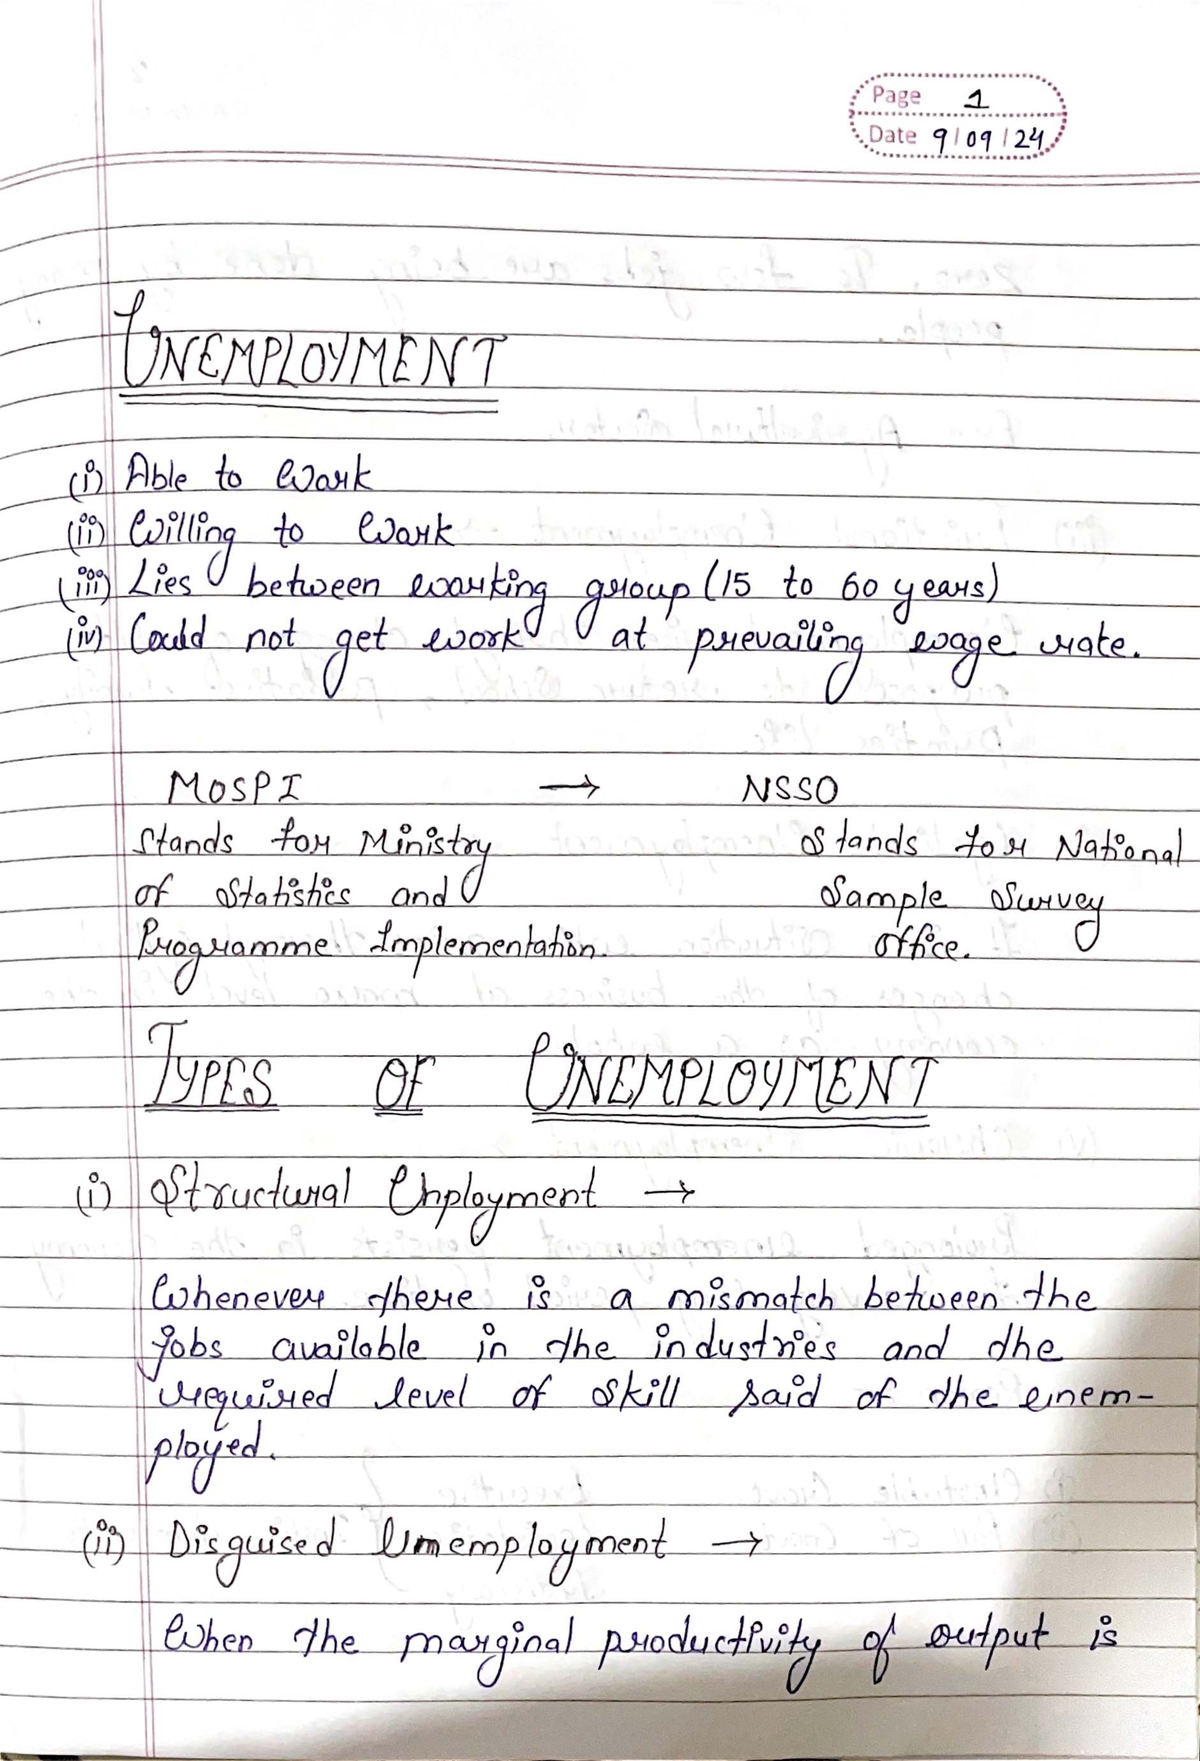 Page 1
Date 9/09/24
UNEMPLOYMENT
(i) Able to Work
(ii) Willing to Work
(iii) Lies between working group (15 to 60 years)
(iv) Could not get work at prevailing wage rate.
MOSPI → NSSO
Stands for Ministry Stands for National
of Statistics and Sample Survey
Programme Implementation. Office.
TYPES OF UNEMPLOYMENT
(i) Structural Enployment →
Whenever there is a mismatch between the
jobs available in the industries and the
required level of skill said of the unem-
ployed.
(ii) Disguised Unemployment →
When the marginal productivity of output is